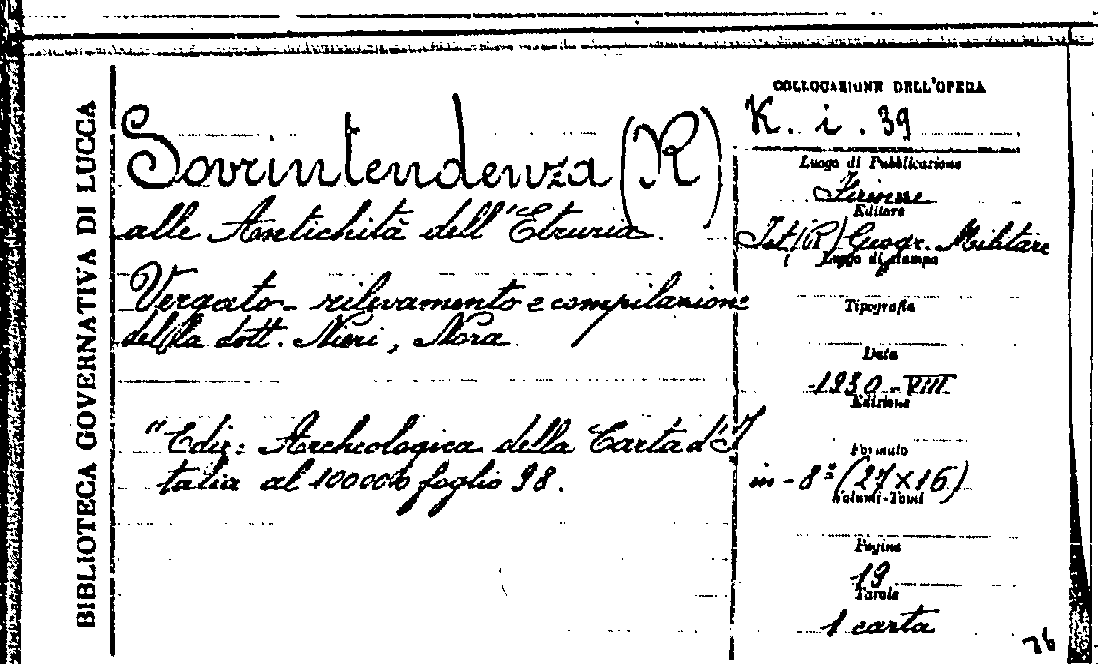 BIBLIOTECA GOVERNATIVA DI LUCCA
Sovrintendenza (R)
alle Antichità dell'Etruria.
Vergato - rilevamento e compilazione
della dott. Nieri, Nora
"Ediz: Archeologica della Carta d'I
talia al 100000 foglio 98.
COLLOCAZIONE DELL'OPERA
K. i. 39
Luogo di Pubblicazione
Firenze
Editore
Ist. (R) Geogr. Militare
Luogo di stampa
Tipografia
Data
1930 - VIII
Edizione
Formato
in - 8º (27 x 16)
Volumi-Tomi
Pagine
19
Tavole
1 carta
76